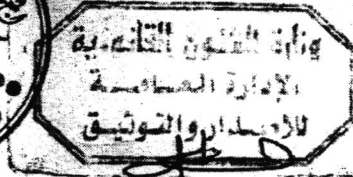 وزارة الشئون القانونية
الإدارة العامة
للإصدار والتوثيق